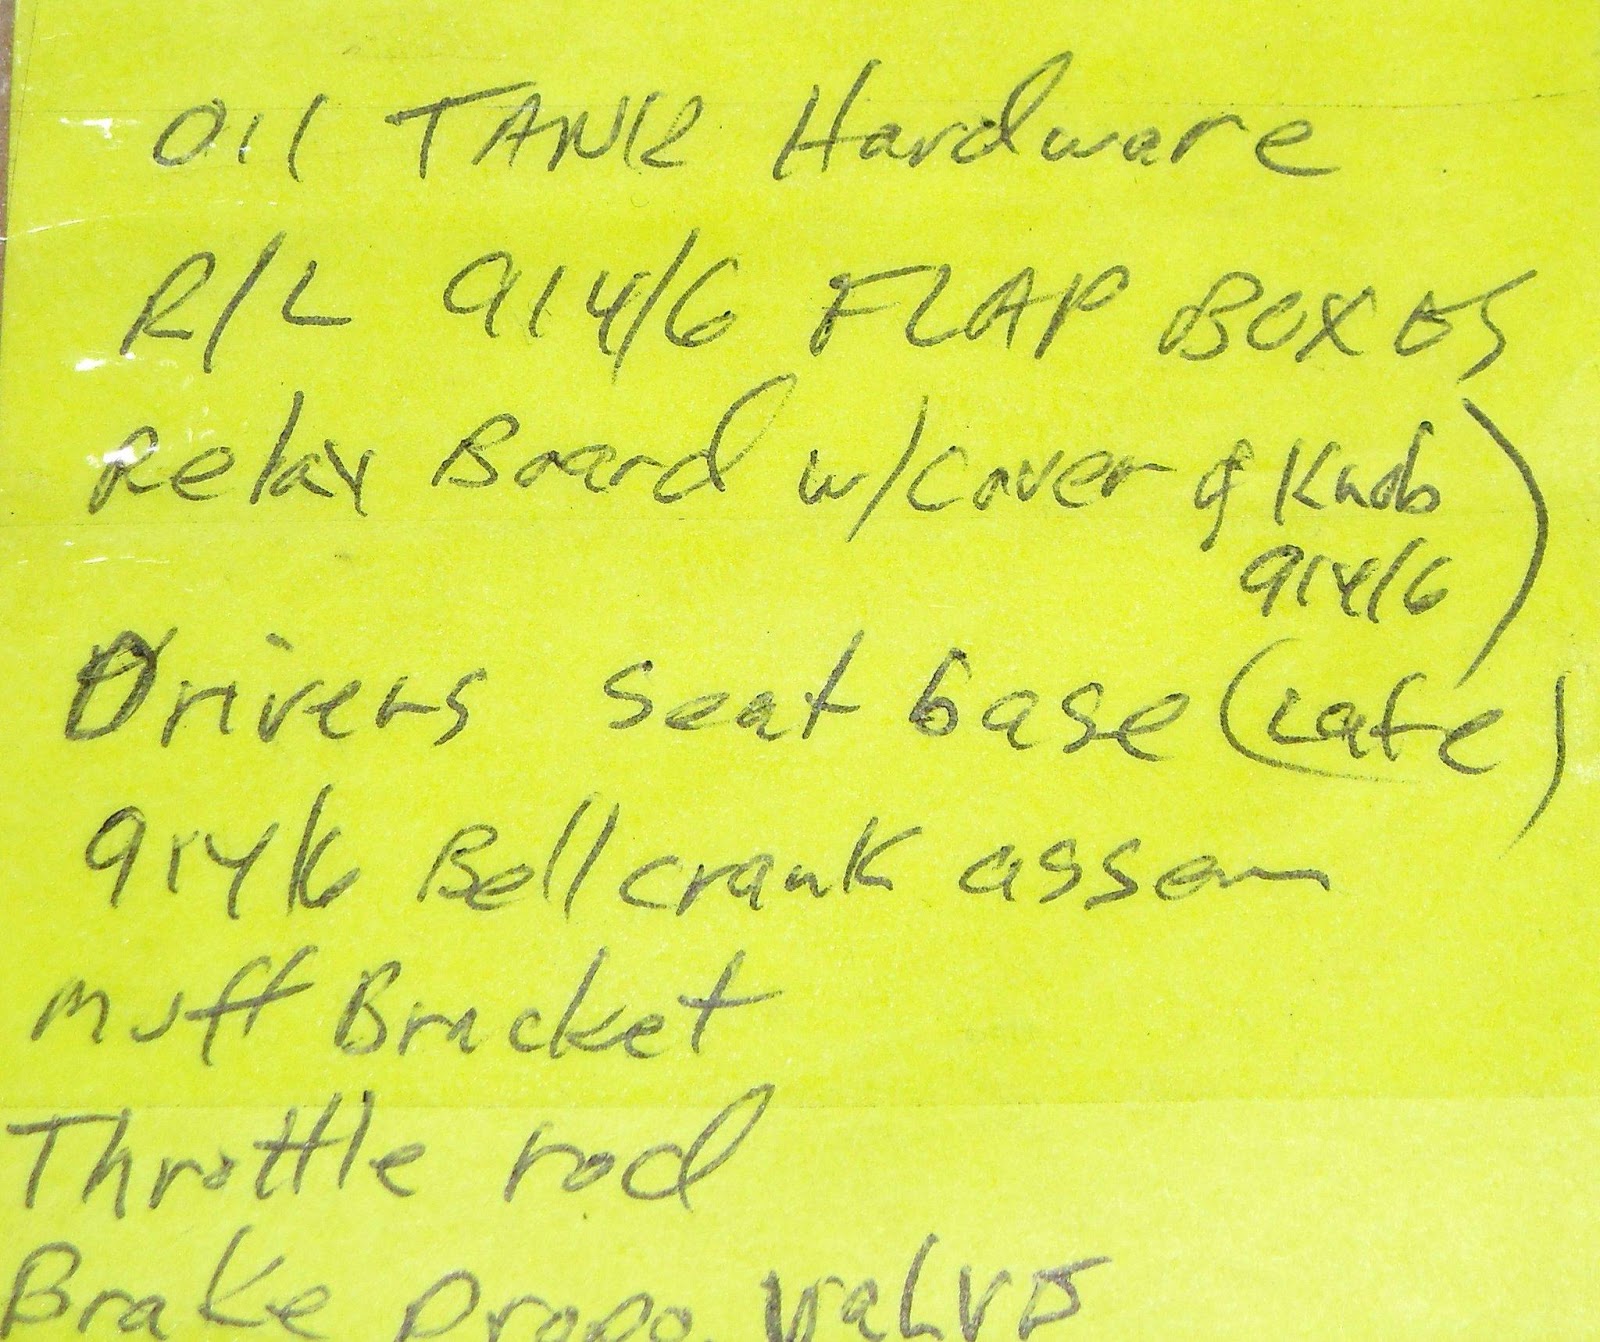 Oil TANK Hardware
R/L 914/6 FLAP BOXES
Relay Board w/cover & Knob
914/6)
Drivers seat base (Late)
914/6 Bell crank assem
muff Bracket
Throttle rod
Brake propo. valve